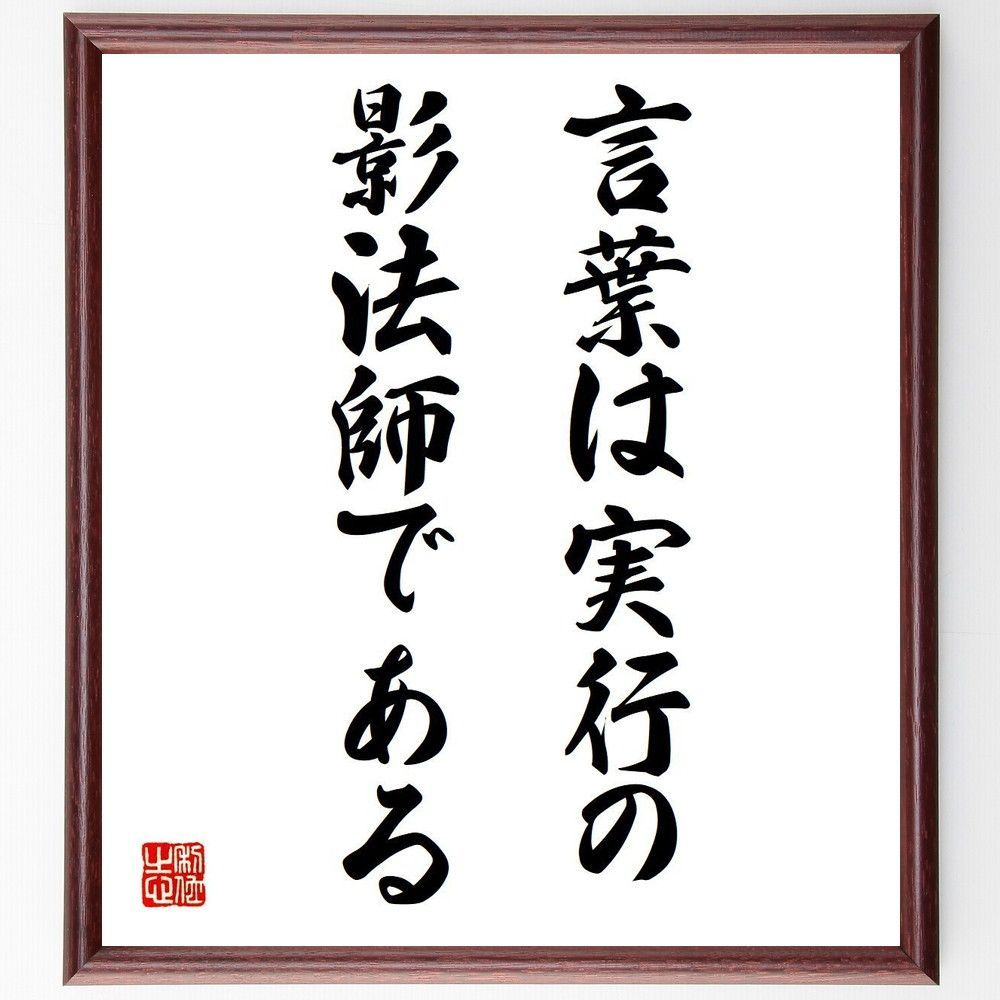 言葉は実行の
影法師である